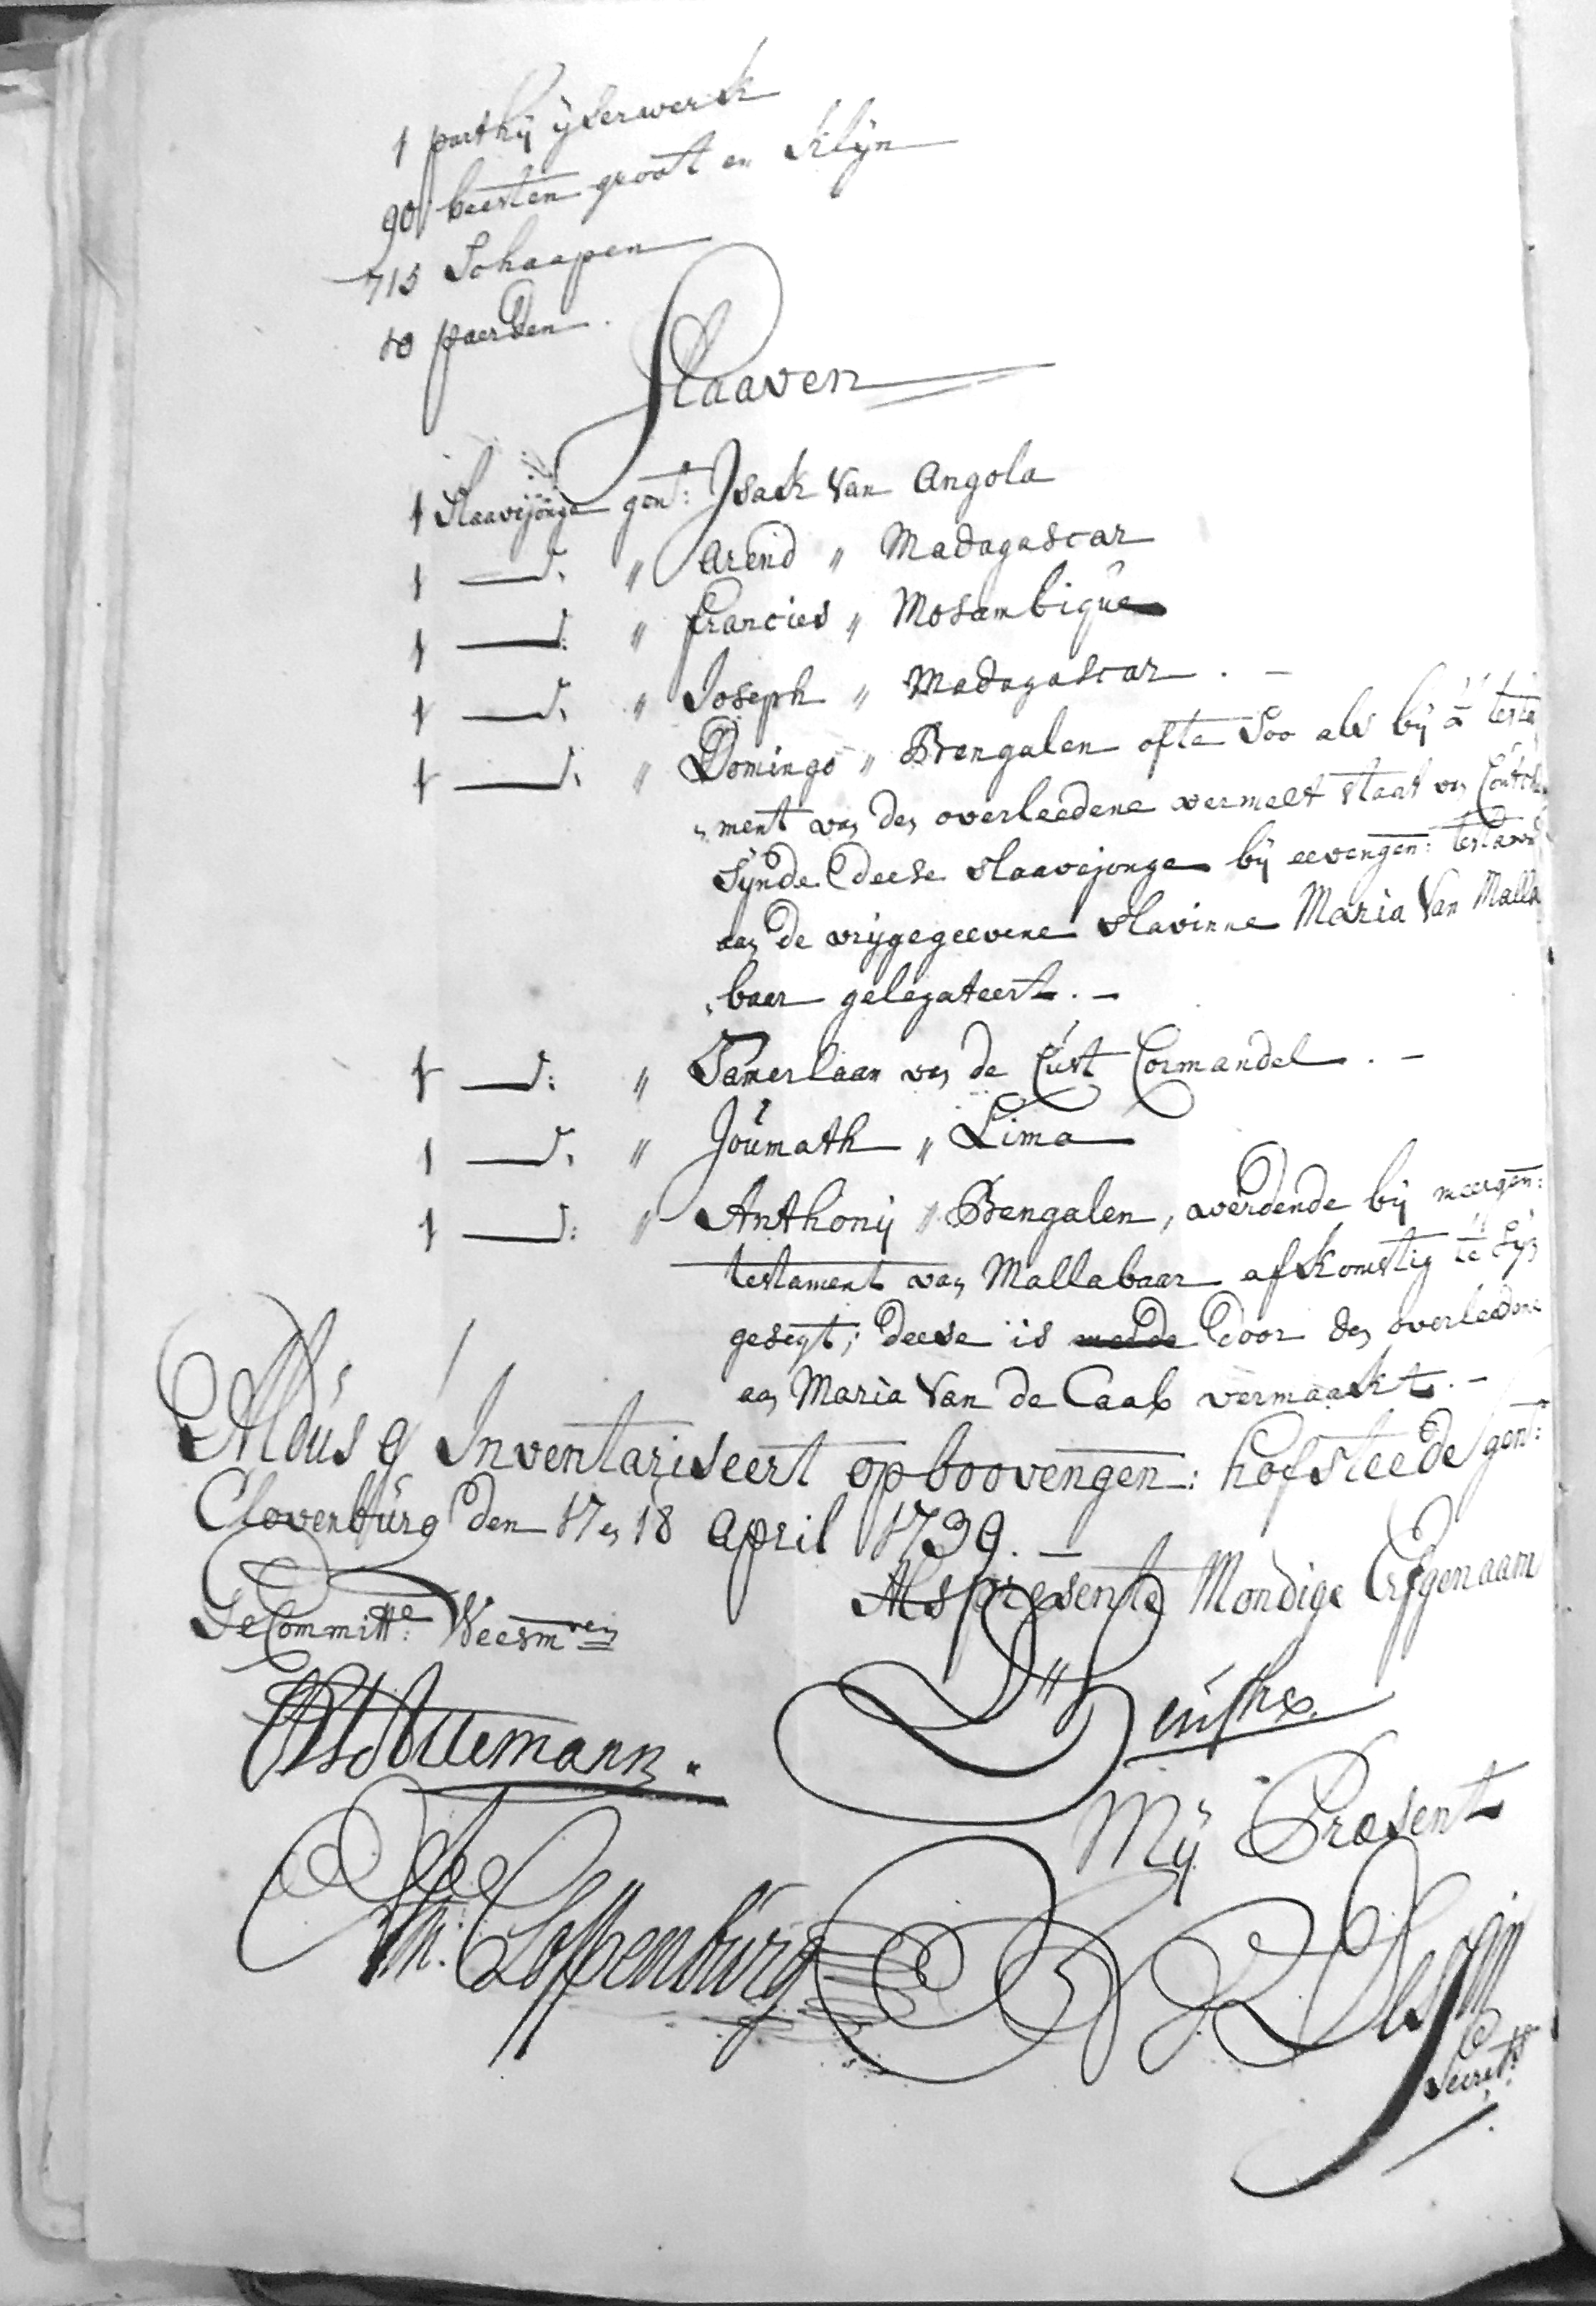 1 parthij ijserwerk
90 beesten groot en klijn
715 Schaapen
10 paerden.
Slaaven
1 Slaavejonge gent: Isak van Angola
1 ——d: " Arend " Madagascar
1 ——d: " francies " Mosambique
1 ——d: " Joseph " Madagascar . –
1 ——d: " Domingo " Bengalen ofte Soo als bij 't testa
"ment van den overleedene vermelt staat van
sijnde deese slaavejonge bij eevengen: testamt
aan de vrijgegeevene slavinne Maria van Malla
"baer gelegateert. –
1 ——d: " Tamerlaan van de Cust Cormandel . –
1 ——d: " Joumath " Lima
1 ——d: " Anthonij " Bengalen, werdende bij meergen:
testament van Mallabaar afkomstig te sijn
gesegt; deese is meede door den overleedene
aan Maria van de Caab vermaakt. –
Aldus g' Inventariseert op boovengen: hofsteede gent:
Clovenburg den 17 en 18 April 1739. –
Als presente Mondige Erfgenaam
Gecommitte: Weesmren
D:
Mij Present
Am: Cloppenburg
J: N: D'Essin
Secrets.